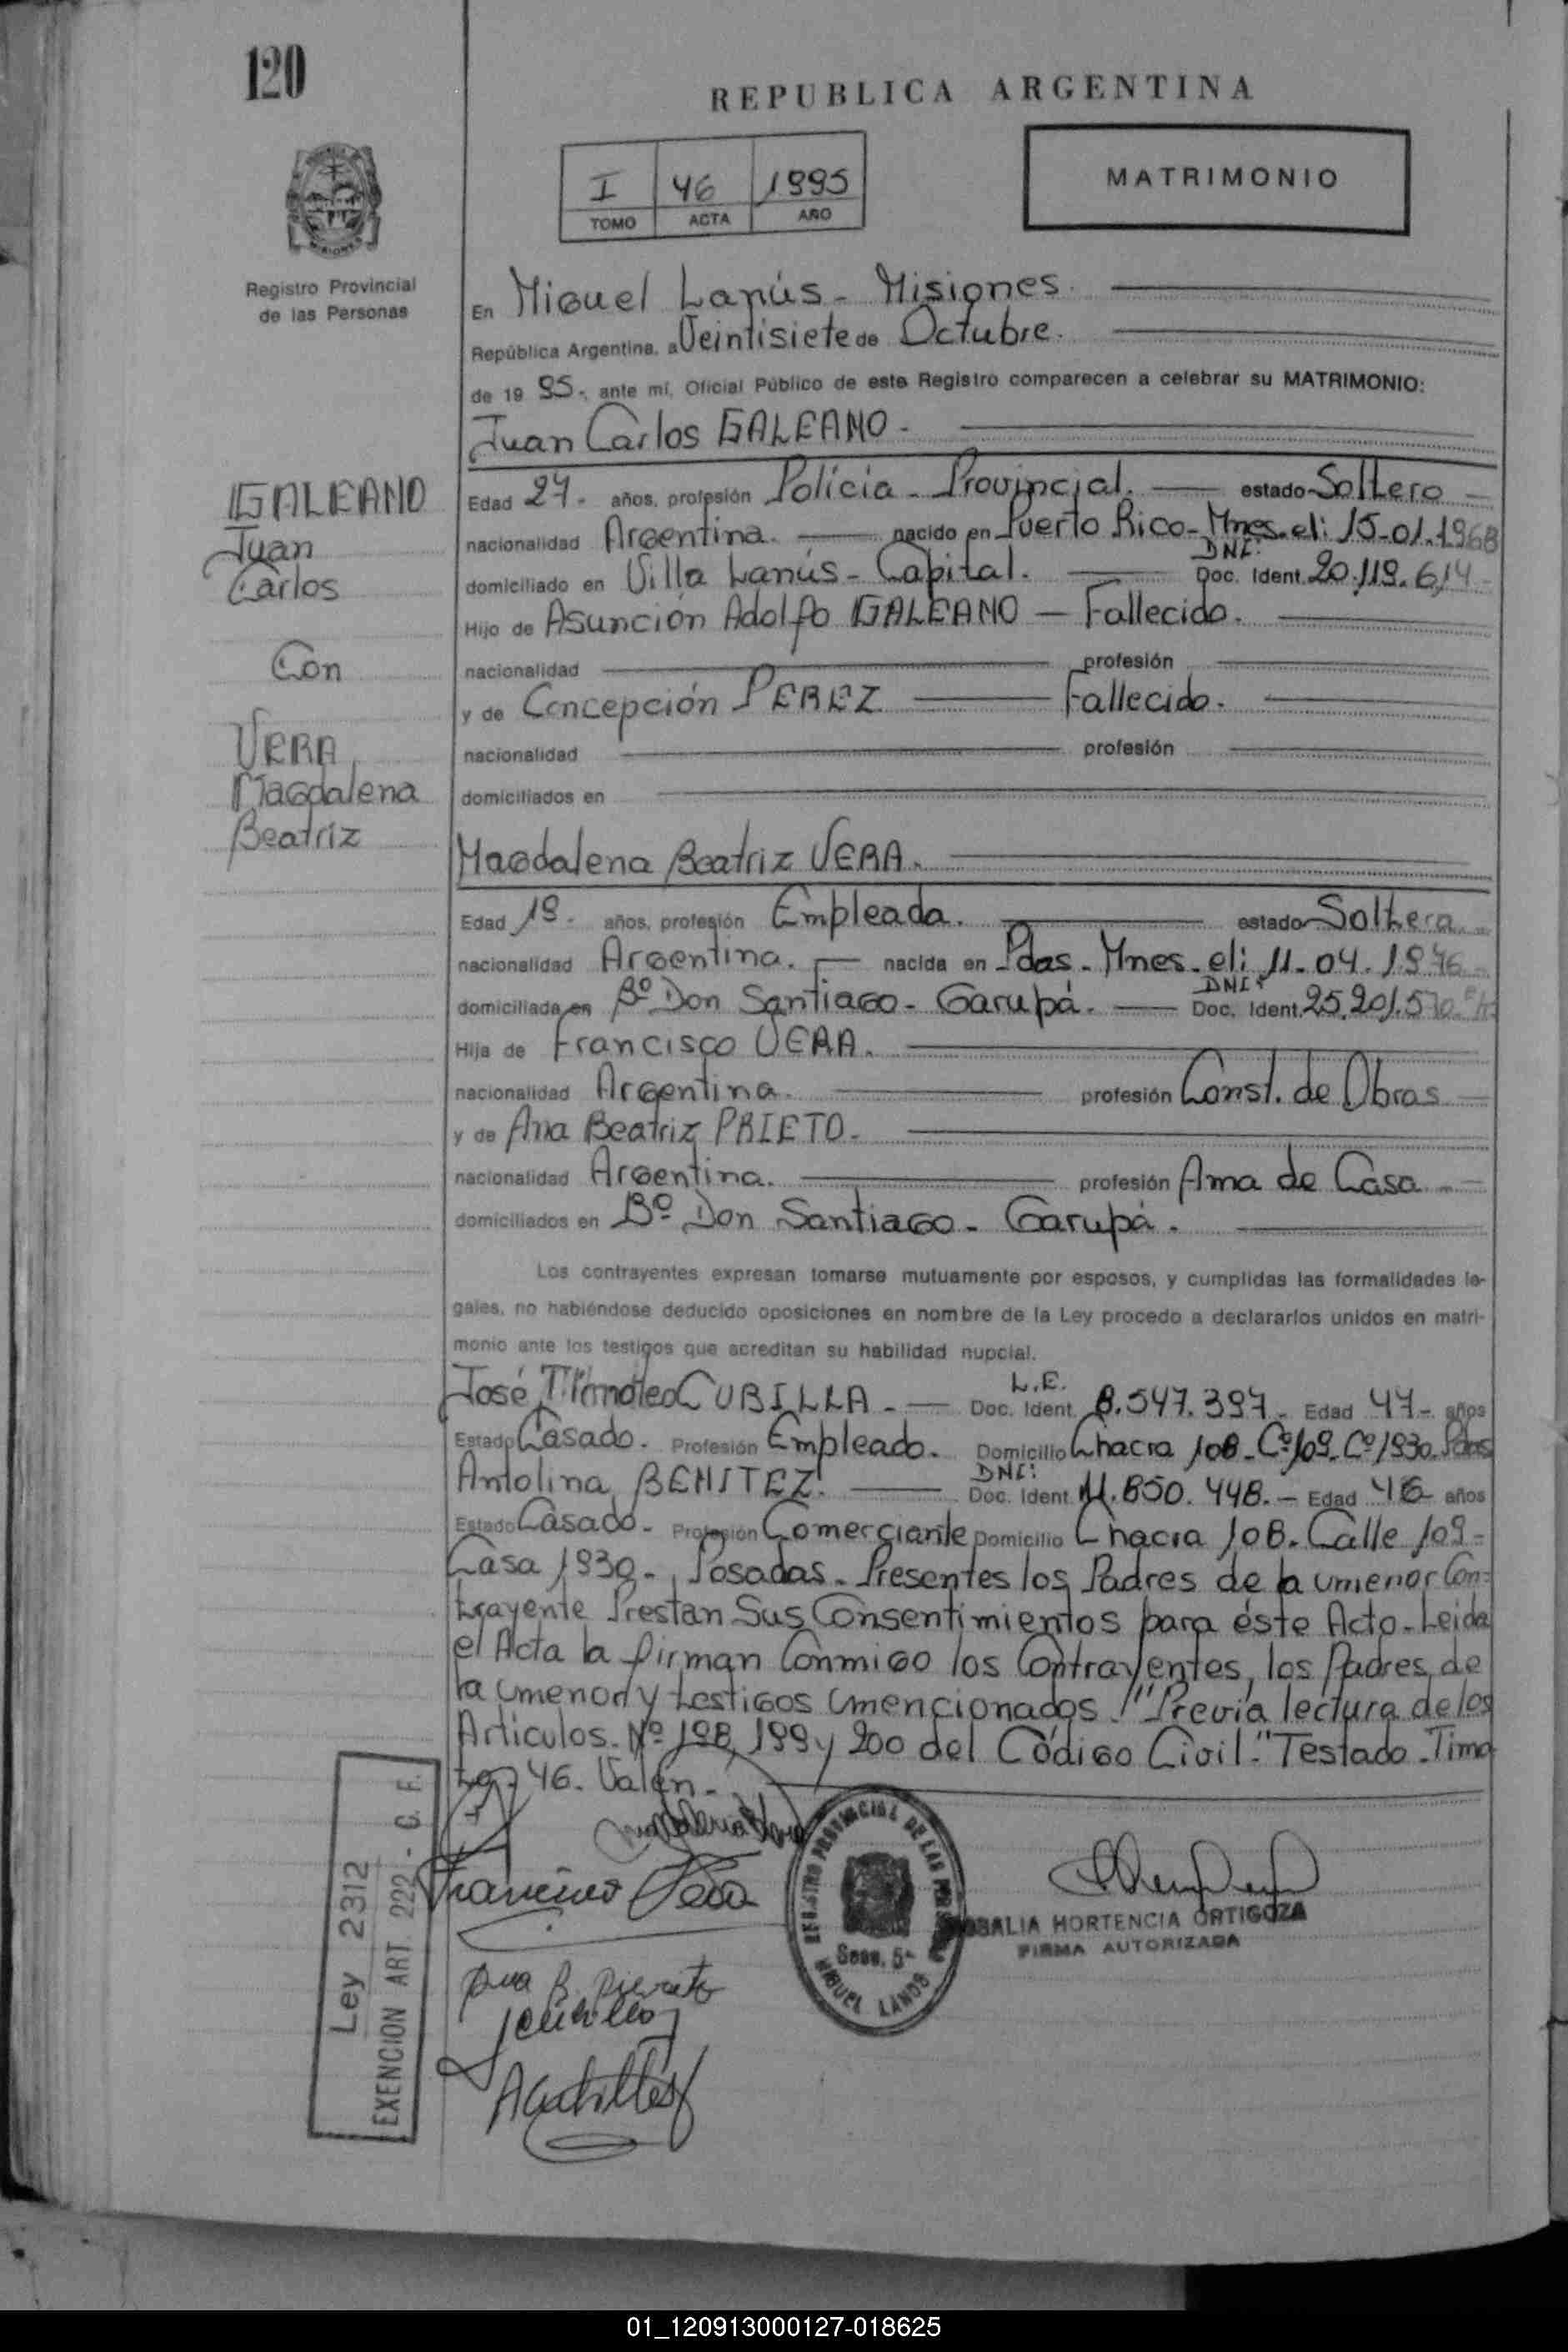 120
REPUBLICA ARGENTINA
I 46 1995
TOMO ACTA AÑO
MATRIMONIO
Registro Provincial
de las Personas
En Miguel Lanús - Misiones.
República Argentina, a Veintisiete de Octubre.
de 19 95.- ante mí, Oficial Público de este Registro comparecen a celebrar su MATRIMONIO:
Juan Carlos GALEANO.-
GALEANO
Juan
Carlos
Con
VERA
Magdalena
Beatriz
Edad 27.- años, profesión Policia - Provincial. estado Soltero
nacionalidad Argentina. nacido en Puerto Rico - Mnes. el: 15-01-1968
domiciliado en Villa Lanús - Capital. DNI: Doc. Ident. 20.119.614
Hijo de Asunción Adolfo GALEANO - Fallecido.
nacionalidad profesión
y de Concepción PEREZ Fallecido.
nacionalidad profesión
domiciliados en
Magdalena Beatriz VERA.
Edad 19.- años, profesión Empleada. estado Soltera
nacionalidad Argentina. nacida en Pdas - Mnes - el: 11-04-1976
domiciliada en Bº Don Santiago - Garupá. DNI: Doc. Ident. 25.201.570
Hija de Francisco VERA.
nacionalidad Argentina. profesión Const. de Obras
y de Ana Beatriz PRIETO.
nacionalidad Argentina. profesión Ama de Casa
domiciliados en Bº Don Santiago - Garupá.
Los contrayentes expresan tomarse mutuamente por esposos, y cumplidas las formalidades le-
gales, no habiéndose deducido oposiciones en nombre de la Ley procedo a declararlos unidos en matri-
monio ante los testigos que acreditan su habilidad nupcial.
José Timoteo CUBILLA.- L.E. Doc. Ident. 8.547.397.- Edad 47- años
Estado Casado. Profesión Empleado. Domicilio Chacra 108 - Cº 109 - Cº 1930. Pdas
Antolina BENITEZ. DNI: Doc. Ident. 11.850.448.- Edad 46 años
Estado Casado- Profesión Comerciante Domicilio Chacra 108. Calle 109-
Casa 1930.- Posadas. Presentes los Padres de la menor Con-
trayente Prestan Sus Consentimientos para éste Acto. Leida
el Acta la firman Conmigo los Contrayentes, los Padres de
la menor y testigos mencionados." Previa lectura de los
Articulos Nº 198, 199 y 200 del Código Civil." Testado - Timo
teo 46. Valen.-
Ley 2312
EXENCION ART. 222 - C. F.
Francisco Vera
REGISTRO PROVINCIAL DE LAS PERSONAS
Secc. 5ª
MIGUEL LANUS
ROSALIA HORTENCIA ORTIGOZA
FIRMA AUTORIZADA
01_120913000127-018625